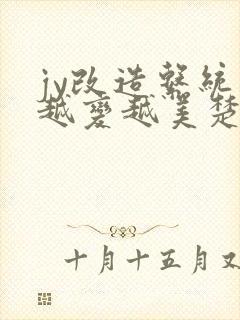 jy改造系統
越變越美楚
十月十五月又